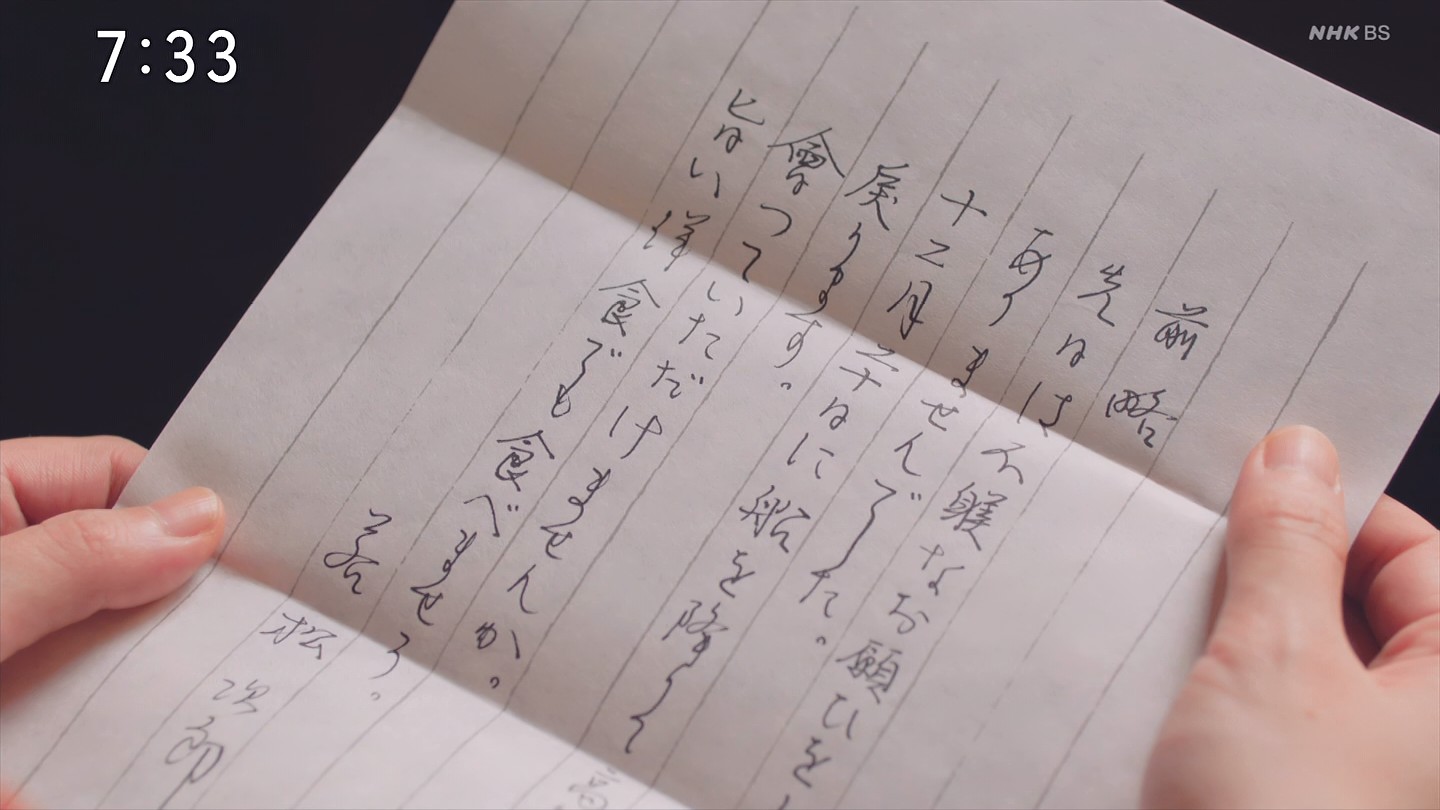 7:33
NHK BS
前略
先日は不躾なお願ひを
ありませんでした。
十二月二十日に船を降りて
戻ります。
會つていただけませんか。
旨い洋食でも食べませう。
若松次郎
高